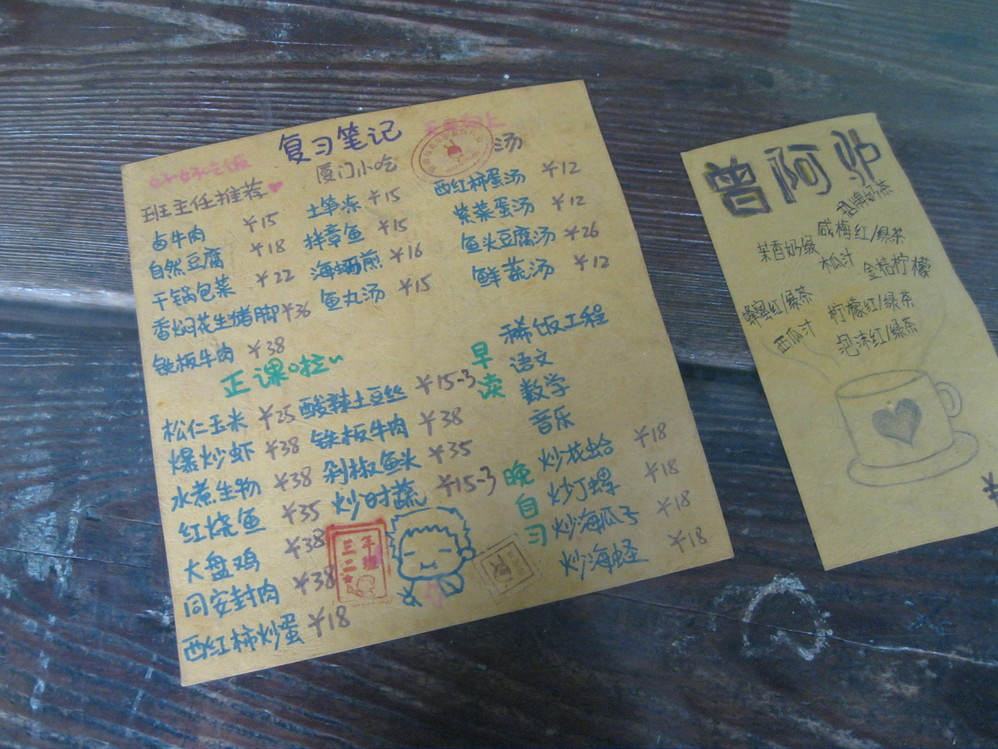 复习笔记
好好吃饭
班主任推荐
卤牛肉 ¥15
自然豆腐 ¥18
干锅包菜 ¥22
香焖花生猪脚 ¥36
铁板牛肉 ¥38
厦门小吃
土笋冻 ¥15
拌章鱼 ¥15
海蛎煎 ¥16
鱼丸汤 ¥15
汤
西红柿蛋汤 ¥12
紫菜蛋汤 ¥12
鱼头豆腐汤 ¥26
鲜蔬汤 ¥12
正课啦~
松仁玉米 ¥25
爆炒虾 ¥38
水煮生物 ¥38
红烧鱼 ¥35
大盘鸡 ¥38
同安封肉 ¥38
西红柿炒蛋 ¥18
酸辣土豆丝 ¥15-3
铁板牛肉 ¥38
剁椒鱼头 ¥35
炒时蔬 ¥15-3
早读
稀饭工程
语文
数学
音乐
晚自习
炒花蛤 ¥18
炒丁螺 ¥18
炒海瓜子 ¥18
炒海蛏 ¥18
三年二班
曾阿驴
招牌奶茶
咸梅红/绿茶
茉香奶绿
木瓜汁
金桔柠檬
蜂蜜红/绿茶
柠檬红/绿茶
西瓜汁
泡沫红/绿茶